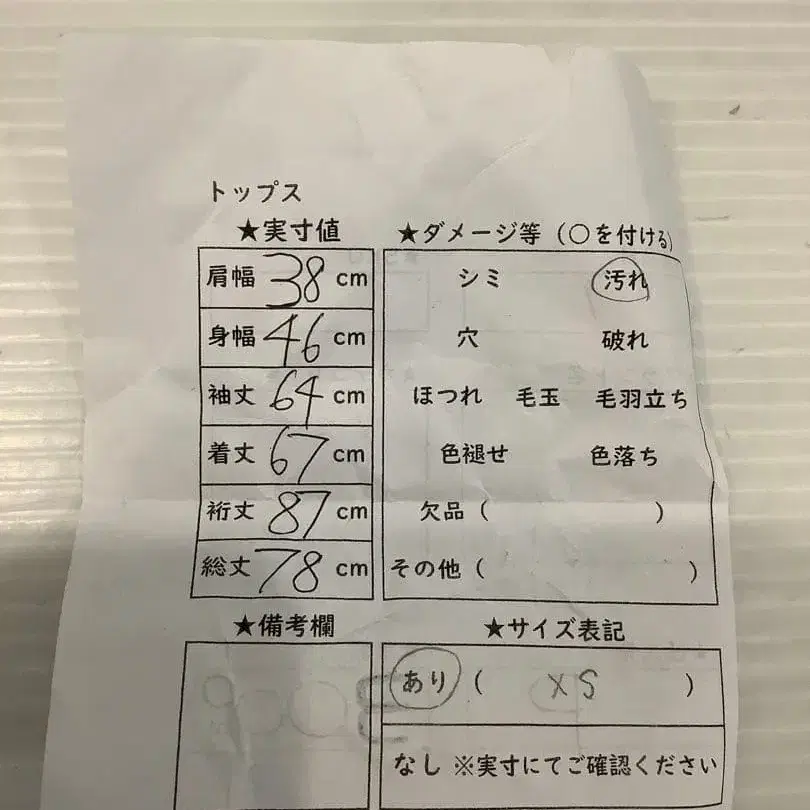 トップス
★実寸値
肩幅 38 cm
身幅 46 cm
袖丈 64 cm
着丈 67 cm
裄丈 87 cm
総丈 78 cm
★ダメージ等（○を付ける）
シミ 汚れ
穴 破れ
ほつれ 毛玉 毛羽立ち
色褪せ 色落ち
欠品（ ）
その他（ ）
★備考欄
★サイズ表記
あり（ XS ）
なし ※実寸にてご確認ください